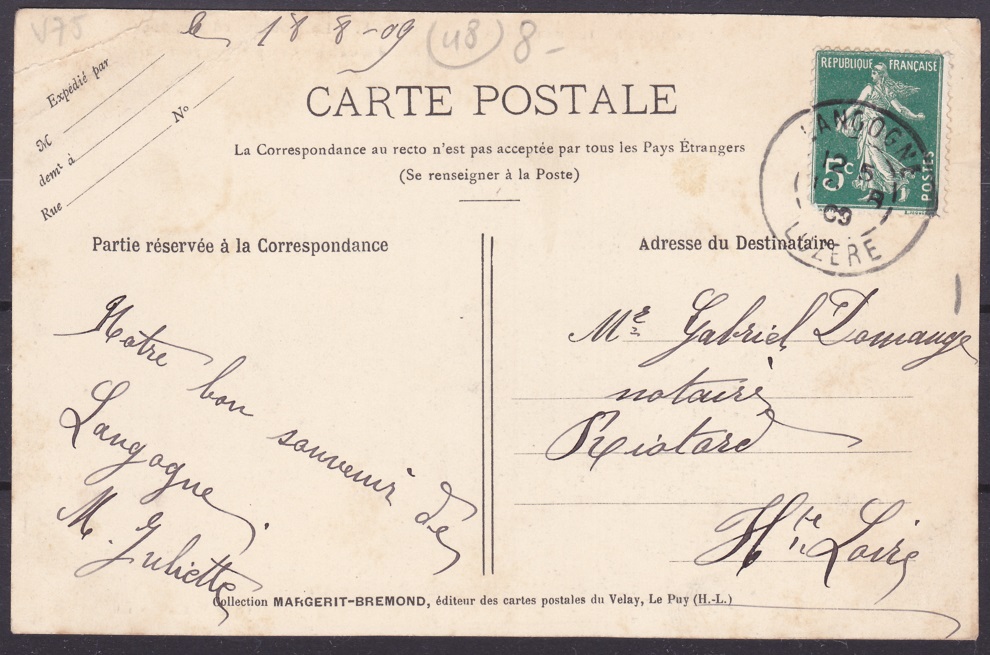 V75
le 18 8-09 (48) 8-
Expédié par
M
demt à
Rue
No
CARTE POSTALE
La Correspondance au recto n'est pas acceptée par tous les Pays Étrangers
(Se renseigner à la Poste)
RÉPUBLIQUE FRANÇAISE
5c
POSTES
LANGOGNE
12 5
09
LOZÈRE
Partie réservée à la Correspondance
Notre bon souvenir de
Langogne
M. Juliette
Adresse du Destinataire
Me Gabriel Domange
notaire
Riotord
Hte Loire
Collection MARGERIT-BREMOND, éditeur des cartes postales du Velay, Le Puy (H.-L.)